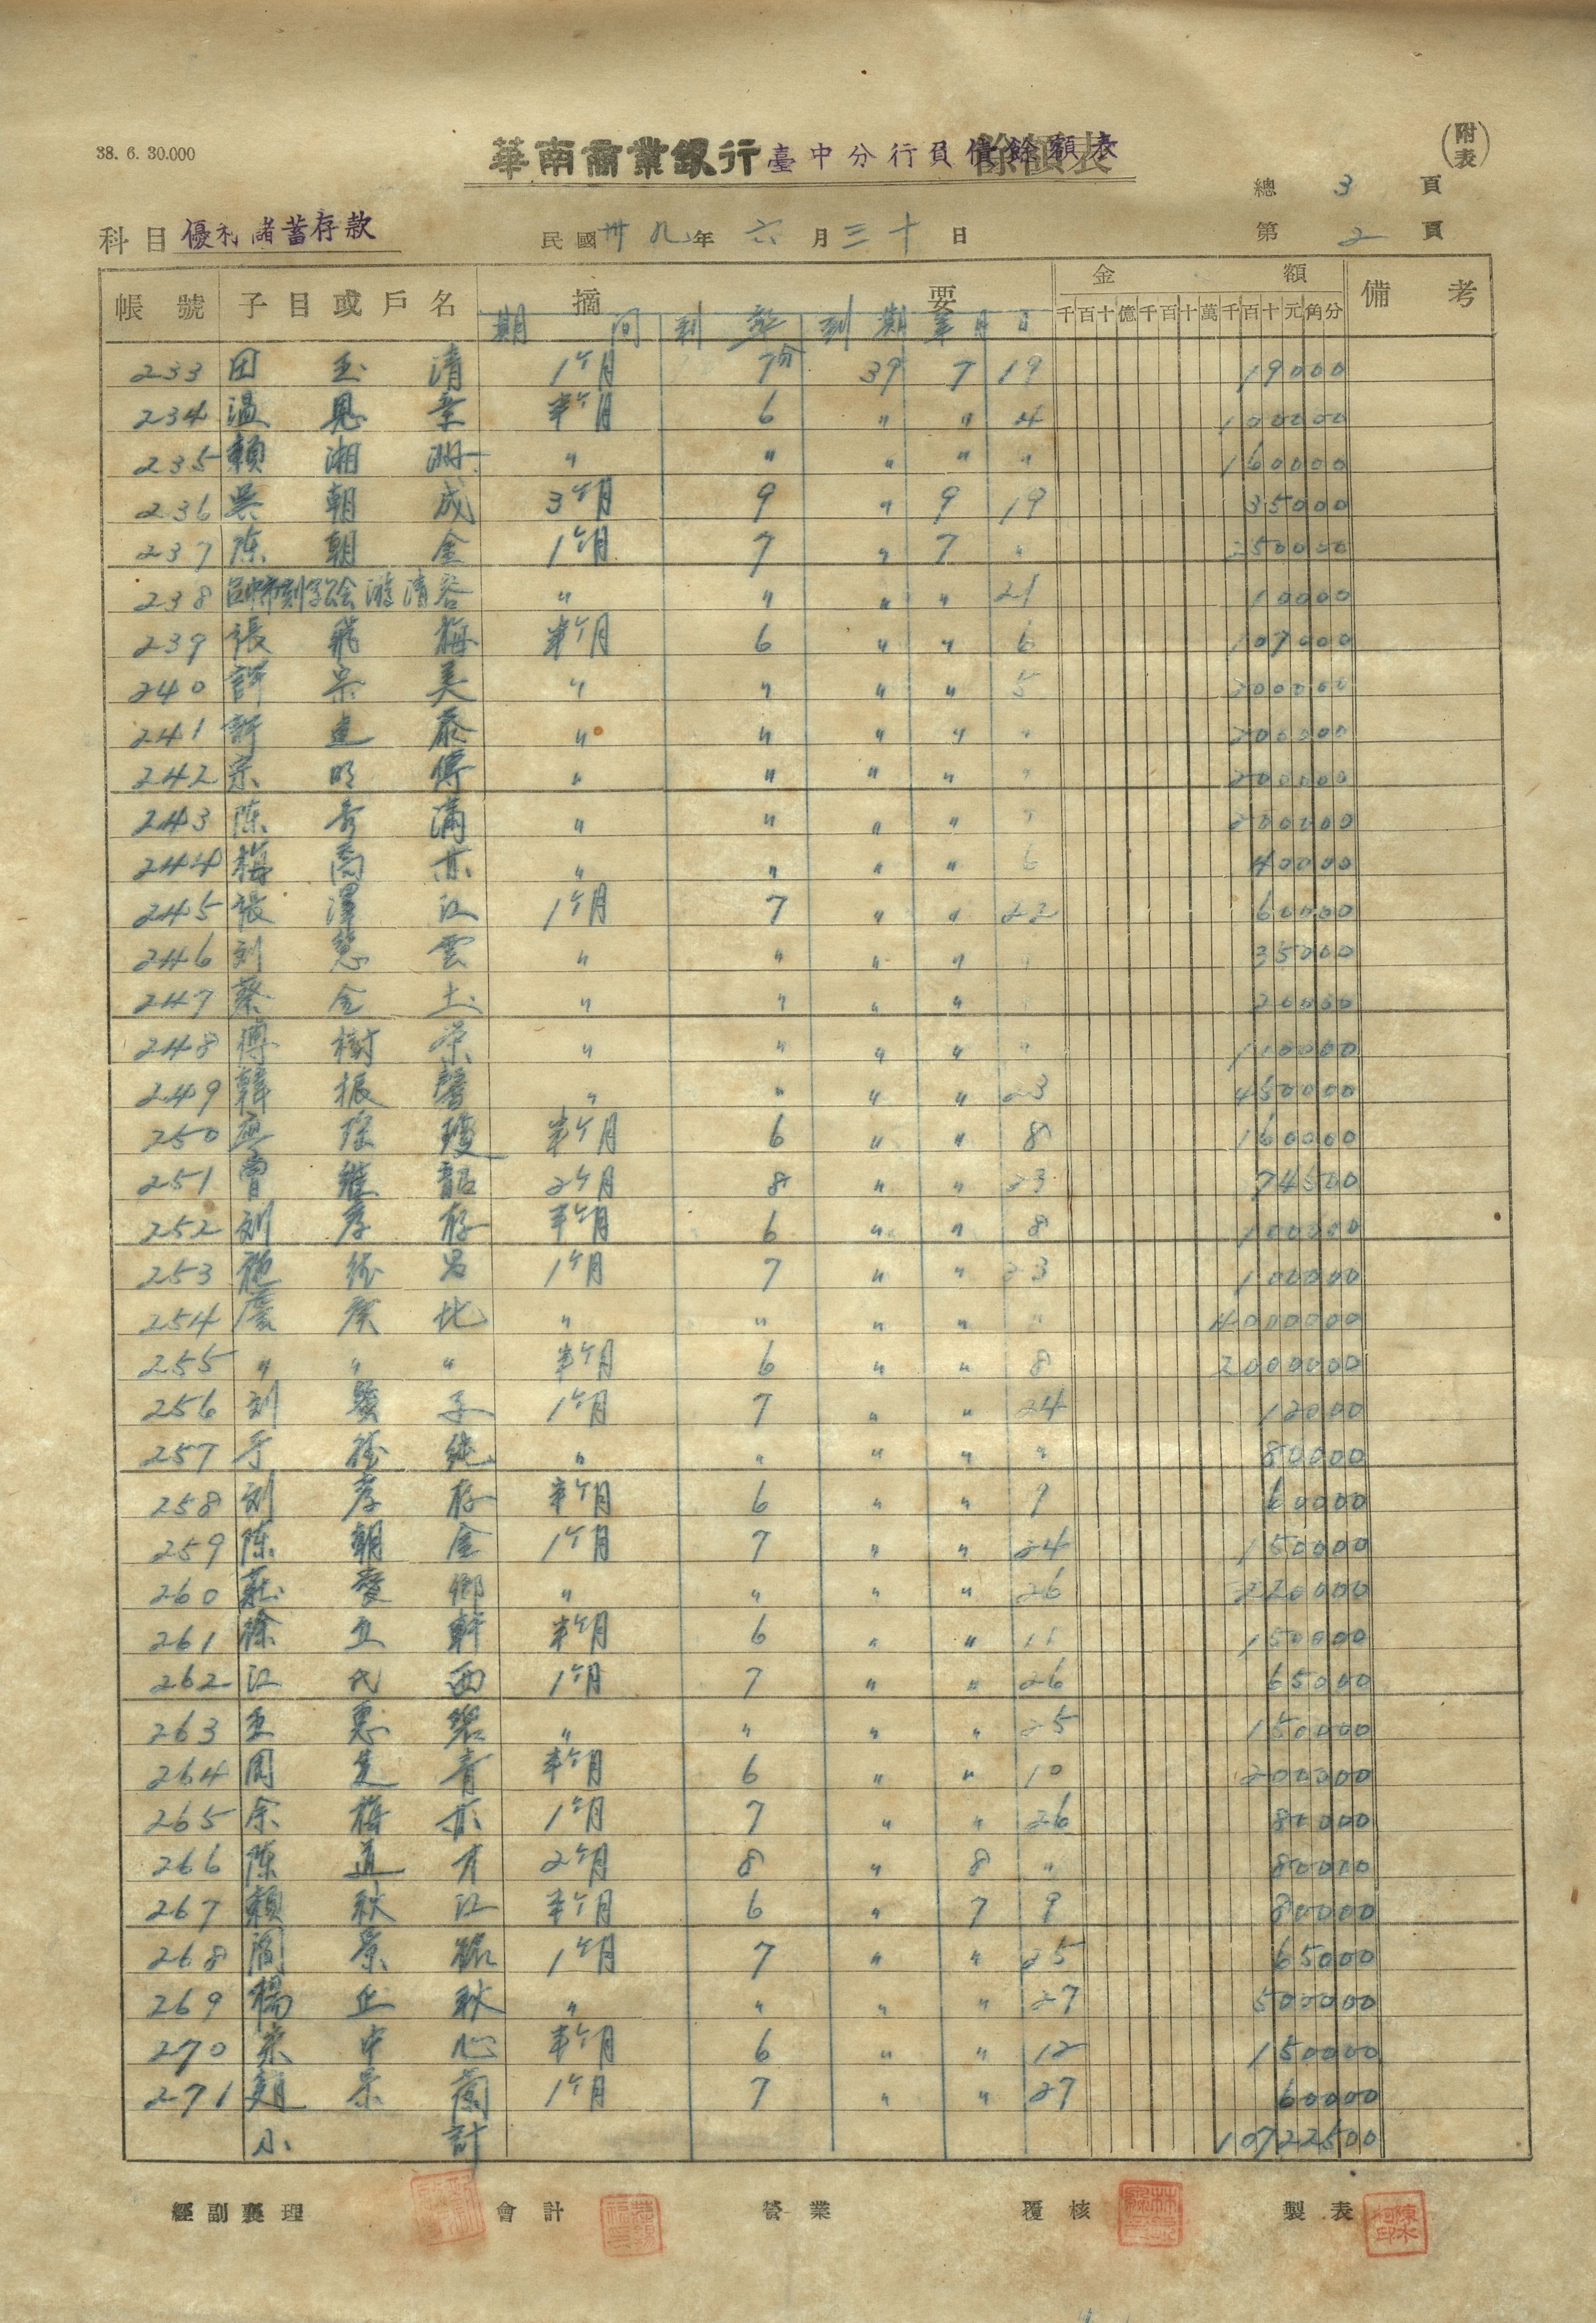 38. 6. 30.000
華南商業銀行臺中分行負債餘額表
(附表)
總 3 頁
科目 優利儲蓄存款 民國卅九年六月三十日 第 2 頁
帳號 子目或戶名 摘要 金額 備考
期間 利率 到期年月日 千百十億千百十萬千百十元角分
233 田玉清 1个月 7分 39 7 19 19000
234 溫恩 半个月 6 〃 〃 4 100000
235 賴湘洲 〃 〃 〃 〃 〃 160000
236 吳朝成 3个月 9 〃 9 19 35000
237 陈朝金 1个月 7 〃 7 〃 250000
238 游清 〃 〃 〃 〃 21 10000
239 張飛梅 半个月 6 〃 〃 6 107000
240 許宗美 〃 〃 〃 〃 5 200000
241 許建泰 〃 〃 〃 〃 〃 200000
242 宗明 〃 〃 〃 〃 〃 200000
243 陈秀滿 〃 〃 〃 〃 〃 200000
244 梅喬 〃 〃 〃 〃 6 40000
245 張澤江 1个月 7 〃 〃 22 60000
246 刘慧雲 〃 〃 〃 〃 〃 35000
247 蔡金土 〃 〃 〃 〃 〃 20000
248 樹榮 〃 〃 〃 〃 〃 110000
249 韓振馨 〃 〃 〃 〃 23 450000
250 半个月 6 〃 〃 8 160000
251 曾繼韶 2个月 8 〃 〃 23 74500
252 刘孝存 半个月 6 〃 〃 8 100000
253 1个月 7 〃 〃 23 100000
254 〃 〃 〃 〃 〃 4000000
255 〃 〃 〃 半个月 6 〃 〃 8 2000000
256 刘 子 1个月 7 〃 〃 24 12000
257 于 純 〃 〃 〃 〃 〃 80000
258 刘孝存 半个月 6 〃 〃 9 60000
259 陈朝金 1个月 7 〃 〃 24 150000
260 卿 〃 〃 〃 〃 26 220000
261 徐立軒 半个月 6 〃 〃 11 150000
262 江代西 1个月 7 〃 〃 26 65000
263 惠 〃 〃 〃 〃 25 150000
264 周 青 半个月 6 〃 〃 10 200000
265 余梅 1个月 7 〃 〃 26 80000
266 陈道才 2个月 8 〃 8 〃 80000
267 賴秋江 半个月 6 〃 7 9 80000
268 景 1个月 7 〃 〃 25 65000
269 楊正秋 〃 〃 〃 〃 27 500000
270 中心 半个月 6 〃 〃 12 150000
271 景蘭 1个月 7 〃 〃 27 60000
小計 10722500
經副襄理 會計 營業 覆核 製表
陳水柯印